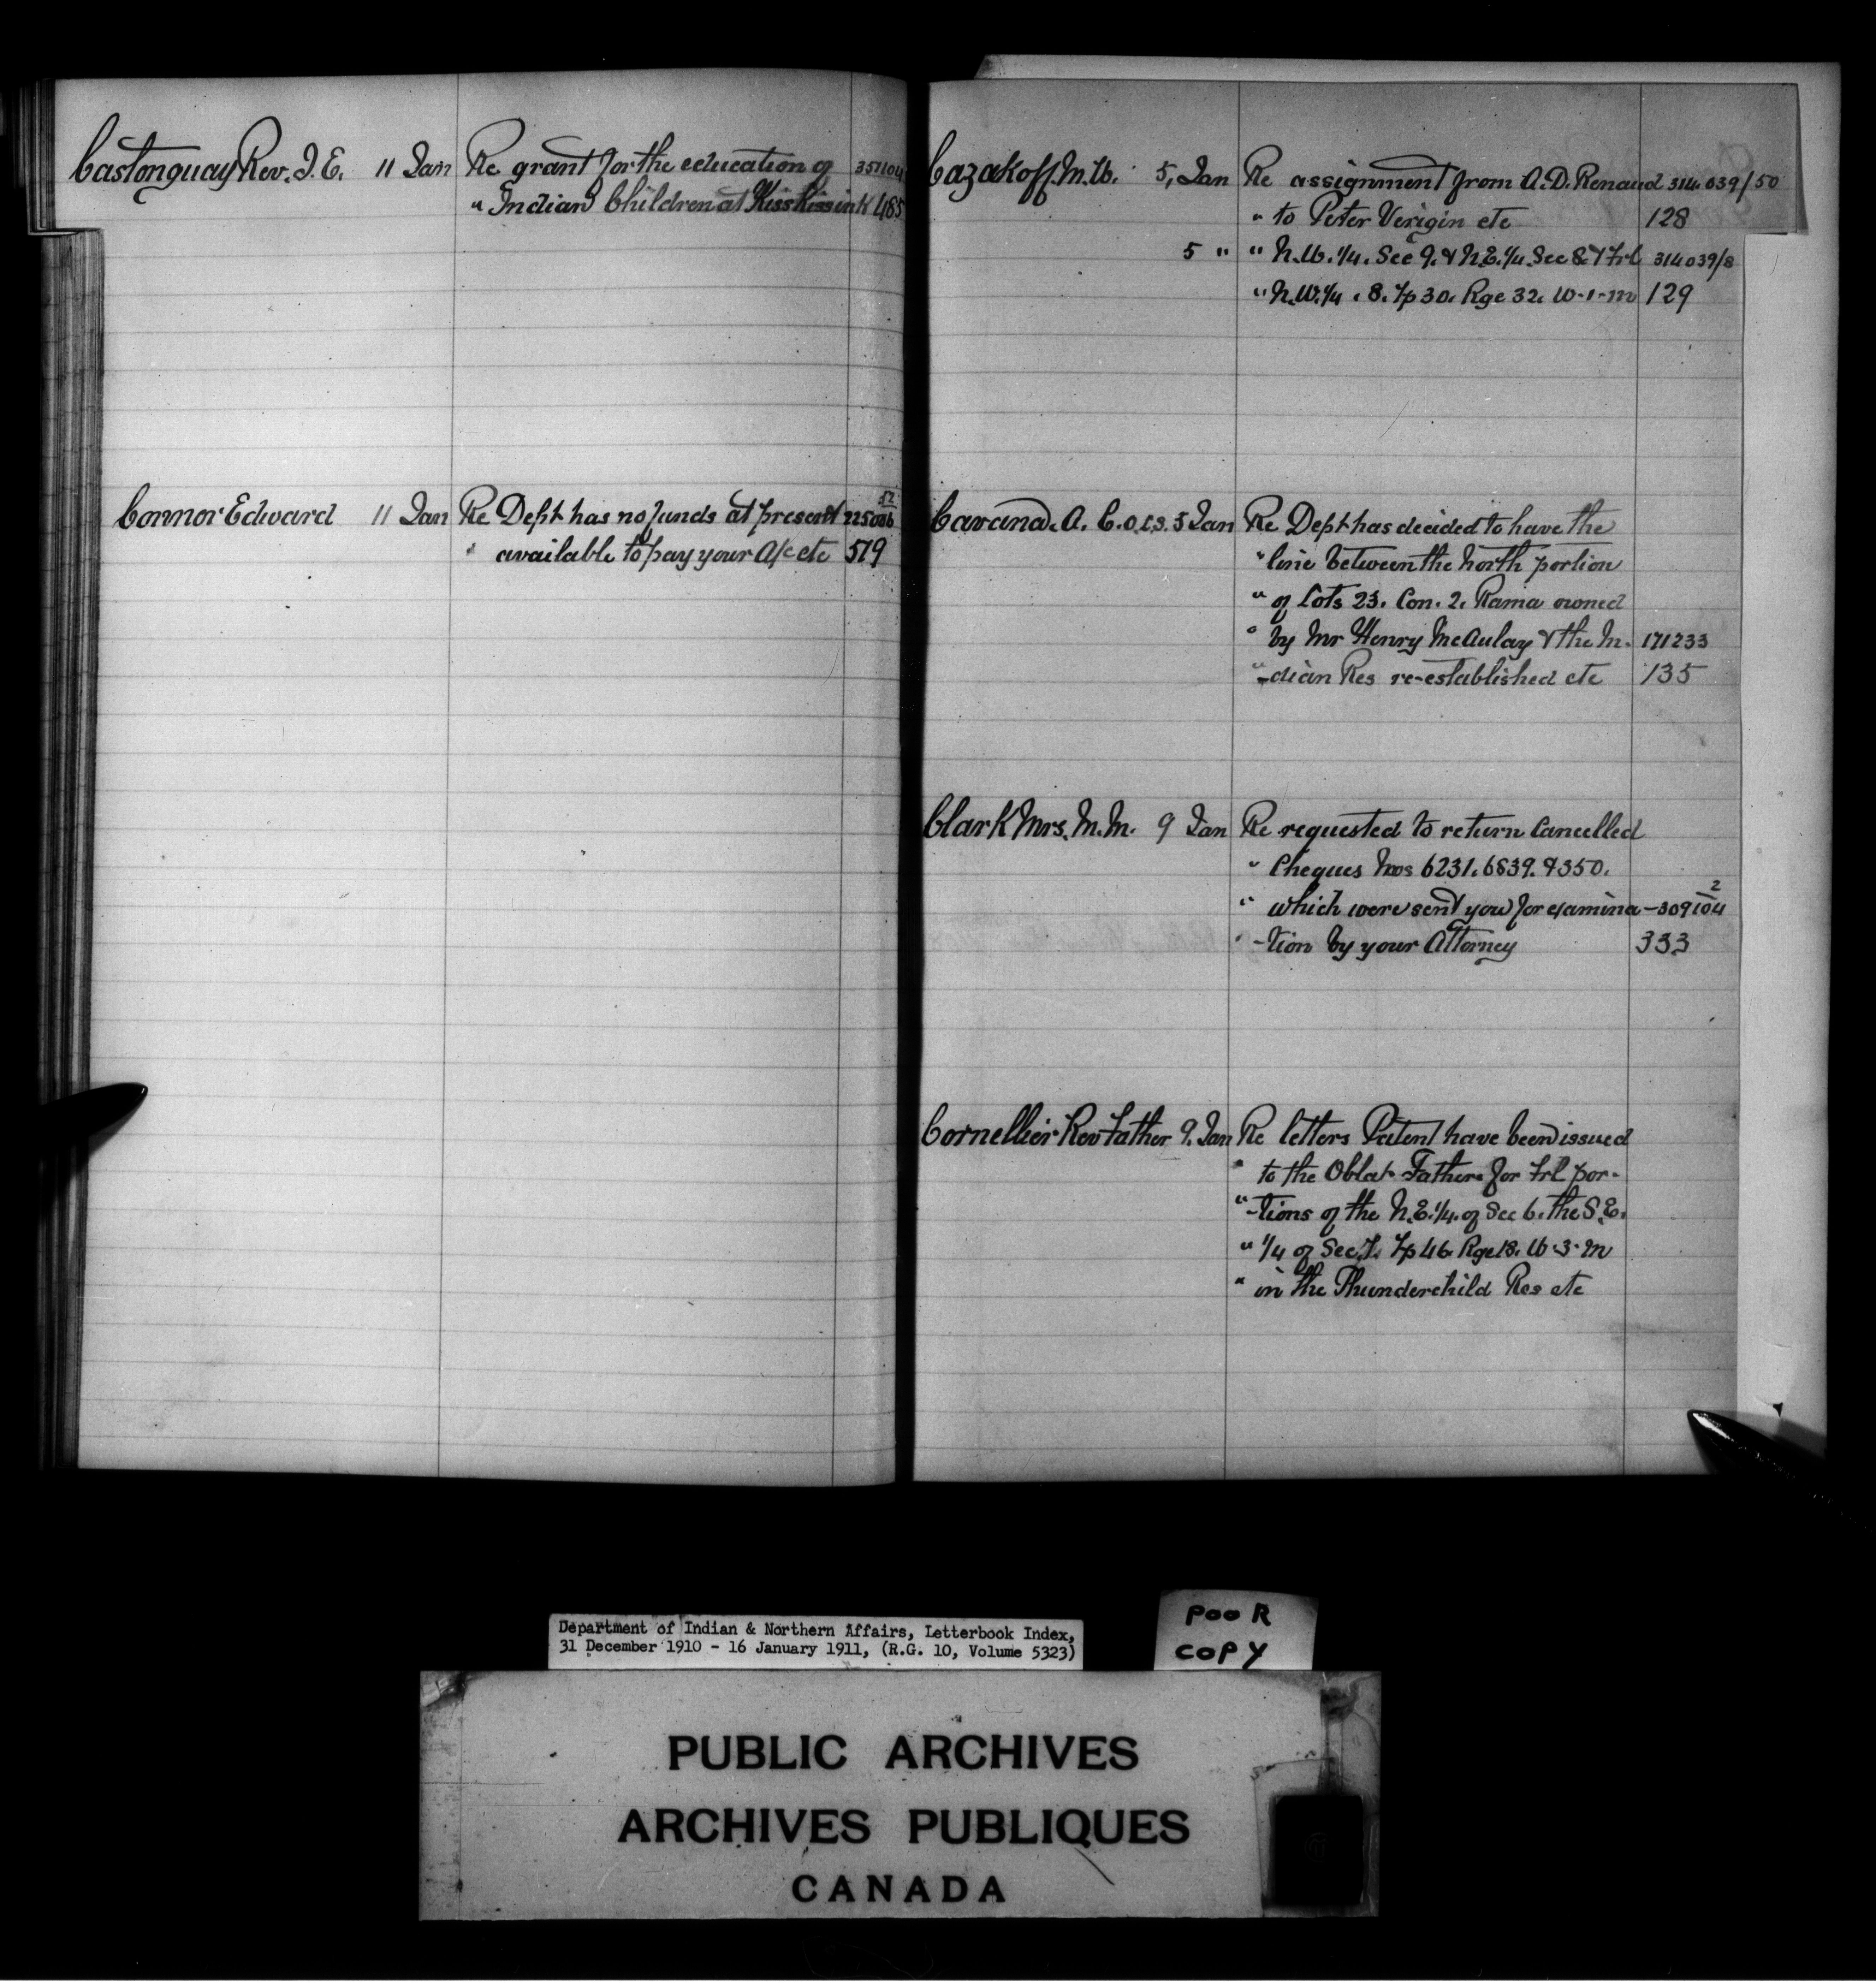 Castonguay Rev. J. E. 11 Jan Re grant for the education of 351104
" Indian Children at Kisskissink 485
Connor Edward 11 Jan Re Dept has no funds at present 225006 52
" available to pay your A/c etc 519
Cazakoff. M. W. 5, Jan Re assignment from A. D. Renaud 314.039/50
" to Peter Verigin etc 128
5 " " N.W. 1/4. Sec 9. & N.E. 1/4 Sec 8. & Frl 314039/8
" N.W. 1/4. 8. Tp 30. Rge 32. W-1-m 129
Cavana. A. C. O.L.S. 5 Jan Re Dept has decided to have the
" line between the North portion
" of Lots 23. Con. 2. Rama owned
" by Mr Henry McAulay & the In- 171233
" -dian Res re-established etc 135
Clark Mrs. M. M. 9 Jan Re requested to return Cancelled
" Cheques Nos 6231. 6839. & 350.
" which were sent you for examina- 309104 2
" -tion by your Attorney 333
Cornellier Rev Father 9. Jan Re letters Patent have been issued
" to the Oblat Fathers for Frl por-
" -tions of the N.E. 1/4. of Sec 6. the S.E.
" 1/4 of Sec 7. Tp 46. Rge 18. W-3-m
" in the Thunderchild Res etc
Department of Indian & Northern Affairs, Letterbook Index,
31 December 1910 - 16 January 1911, (R.G. 10, Volume 5323)
POOR
COPY
PUBLIC ARCHIVES
ARCHIVES PUBLIQUES
CANADA